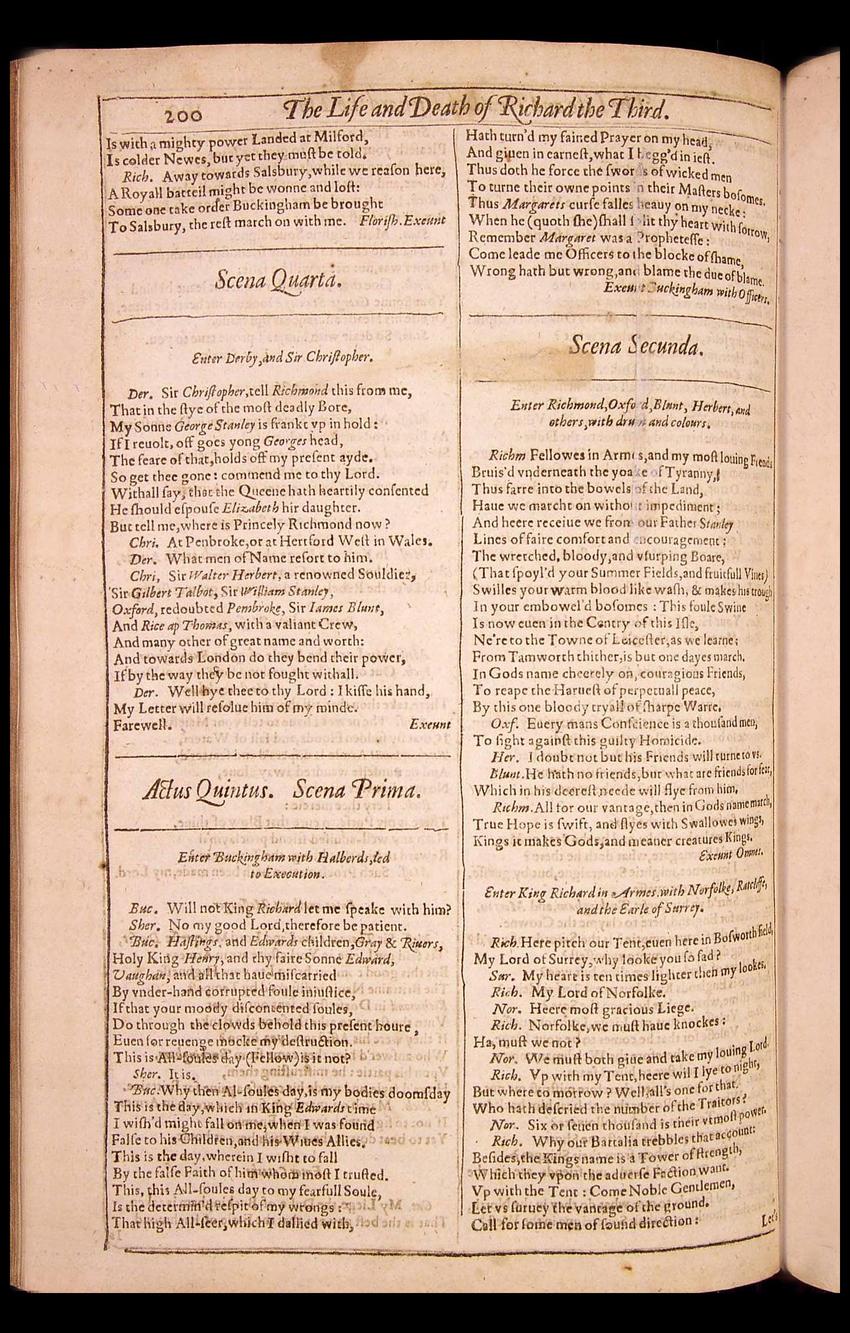 200
The Life and Death of Richard the Third.
Is with a mighty power Landed at Milford,
Is colder Newes, but yet they must be told.
Rich. Away towards Salsbury, while we reason here,
A Royall batteil might be wonne and lost:
Some one take order Buckingham be brought
To Salsbury, the rest march on with me. Florish. Exeunt
Scena Quarta.
Enter Derby, and Sir Christopher.
Der. Sir Christopher, tell Richmond this from me,
That in the stye of the most deadly Bore,
My Sonne George Stanley is frankt vp in hold:
If I reuolt, off goes yong Georges head,
The feare of that, holds off my present ayde.
So get thee gone: commend me to thy Lord.
Withall say, that the Queene hath heartily consented
He should espouse Elizabeth hir daughter.
But tell me, where is Princely Richmond now?
Chri. At Penbroke, or at Hertford West in Wales.
Der. What men of Name resort to him.
Chri, Sir Walter Herbert, a renowned Souldier,
Sir Gilbert Talbot, Sir William Stanley,
Oxford, redoubted Pembroke, Sir Iames Blunt,
And Rice ap Thomas, with a valiant Crew,
And many other of great name and worth:
And towards London do they bend their power,
If by the way they be not fought withall.
Der. Well hye thee to thy Lord: I kisse his hand,
My Letter will resolue him of my minde.
Farewell. Exeunt
Actus Quintus. Scena Prima.
Enter Buckingham with Halberds, led
to Execution.
Buc. Will not King Richard let me speake with him?
Sher. No my good Lord, therefore be patient.
Buc. Hastings, and Edwards children, Gray & Riuers,
Holy King Henry, and thy faire Sonne Edward,
Vaughan, and all that haue miscarried
By vnder-hand corrupted foule iniustice,
If that your moody discontented soules,
Do through the clowds behold this present houre,
Euen for reuenge mocke my destruction.
This is All-soules day (Fellow) is it not?
Sher. It is.
Buc. Why then Al-soules day, is my bodies doomsday
This is the day, which in King Edwards time
I wish'd might fall on me, when I was found
False to his Children, and his Wiues Allies.
This is the day, wherein I wisht to fall
By the false Faith of him whom most I trusted.
This, this All-soules day to my fearfull Soule,
Is the determin'd respit of my wrongs:
That high All-seer, which I dallied with,
Hath turn'd my fained Prayer on my head,
And giuen in earnest, what I begg'd in iest.
Thus doth he force the swords of wicked men
To turne their owne points in their Masters bosomes.
Thus Margarets curse falles heauy on my necke:
When he (quoth she) shall split thy heart with sorrow,
Remember Margaret was a Prophetesse:
Come leade me Officers to the blocke of shame,
Wrong hath but wrong, and blame the due of blame.
Exeunt Buckingham with Officers.
Scena Secunda.
Enter Richmond, Oxford, Blunt, Herbert, and
others, with drum and colours.
Richm Fellowes in Armes, and my most louing Friends
Bruis'd vnderneath the yoake of Tyranny,
Thus farre into the bowels of the Land,
Haue we marcht on without impediment;
And heere receiue we from our Father Stanley
Lines of faire comfort and encouragement:
The wretched, bloody, and vsurping Boare,
(That spoyl'd your Summer Fields, and fruitfull Vines)
Swilles your warm blood like wash, & makes his trough
In your embowel'd bosomes: This foule Swine
Is now euen in the Centry of this Isle,
Ne're to the Towne of Leicester, as we learne;
From Tamworth thither, is but one dayes march.
In Gods name cheerely on, couragious Friends,
To reape the Haruest of perpetuall peace,
By this one bloody tryall of sharpe Warre.
Oxf. Euery mans Conscience is a thousand men,
To fight against this guilty Homicide.
Her. I doubt not but his Friends will turne to vs.
Blunt. He hath no friends, but what are friends for fear,
Which in his deerest neede will flye from him,
Richm. All for our vantage, then in Gods name march,
True Hope is swift, and flyes with Swallowes wings,
Kings it makes Gods, and meaner creatures Kings.
Exeunt Omnes.
Enter King Richard in Armes, with Norfolke, Ratcliffe,
and the Earle of Surrey.
Rich. Here pitch our Tent, euen here in Bosworth field,
My Lord of Surrey, why looke you so sad?
Sur. My heart is ten times lighter then my lookes.
Rich. My Lord of Norfolke.
Nor. Heere most gracious Liege.
Rich. Norfolke, we must haue knockes:
Ha, must we not?
Nor. We must both giue and take my louing Lord.
Rich. Vp with my Tent, heere wil I lye to night,
But where to morrow? Well, all's one for that.
Who hath descried the number of the Traitors?
Nor. Six or seuen thousand is their vtmost power.
Rich. Why our Battalia trebbles that account:
Besides, the Kings name is a Tower of strength,
Which they vpon the aduerse Faction want.
Vp with the Tent: Come Noble Gentlemen,
Let vs suruey the vantage of the ground.
Call for some men of sound direction:
Let's